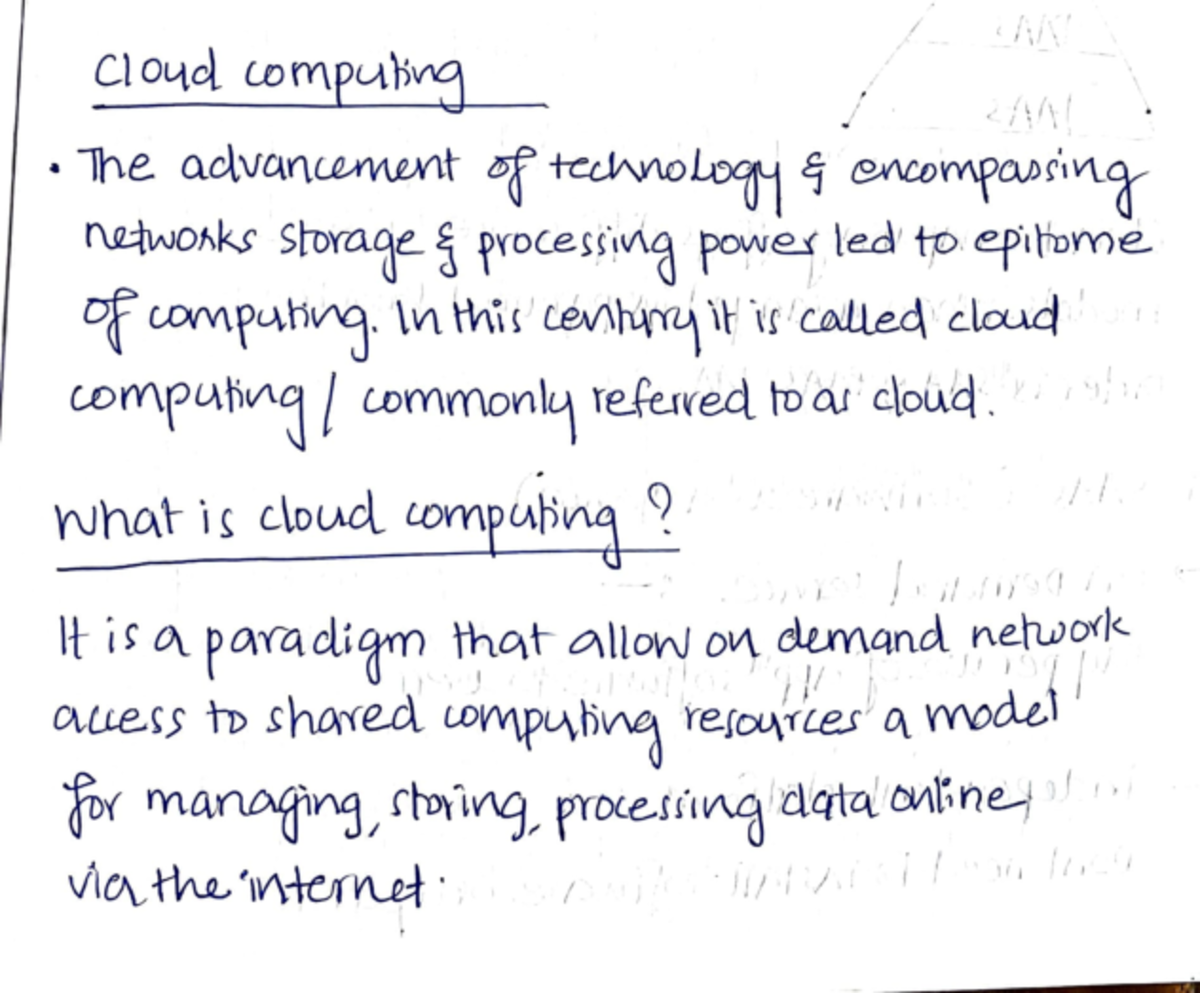 Cloud computing
• The advancement of technology & encompassing
networks storage & processing power led to epitome
of computing. In this century it is called cloud
computing / commonly referred to as cloud.
What is cloud computing ?
It is a paradigm that allow on demand network
access to shared computing resources a model
for managing, storing, processing data online,
via the internet.